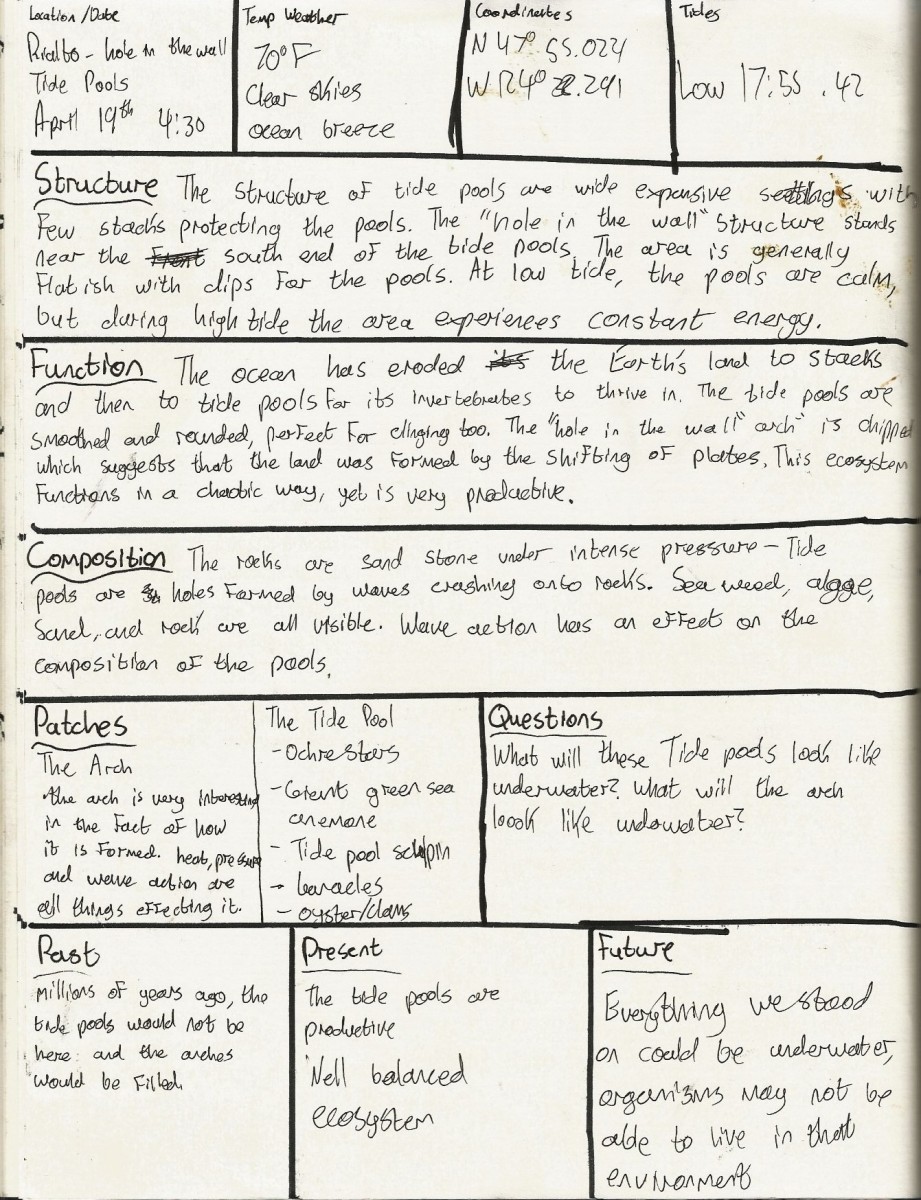 Location/Date
Rialto - hole in the wall
Tide Pools
April 19th 4:30
Temp Weather
70°F
Clear skies
ocean breeze
Coordinates
N 47° 55.024
W 124° 38.291
Tides
Low 17:55 .42
Structure The structure of tide pools are wide expansive settings with
Few stacks protecting the pools. The "hole in the wall" structure stands
near the Front south end of the tide pools. The area is generally
Flatish with dips For the pools. At low tide, the pools are calm,
but during high tide the area experiences constant energy.
Function The ocean has eroded its the Earth's land to stacks
and then to tide pools For its invertebrates to thrive in. The tide pools are
smoothed and rounded, perfect For clinging too. The "hole in the wall" arch" is chipped
which suggests that the land was Formed by the shifting of plates. This ecosystem
Functions in a chaotic way, yet is very productive.
Composition The rocks are sand stone under intense pressure - Tide
pools are holes Formed by waves crashing onto rocks. Sea weed, algae,
Sand, and rock are all visible. Wave action has an effect on the
composition of the pools.
Patches
The Arch
the arch is very interesting
in the Fact of how
it is Formed. heat, pressure
and wave action are
all things effecting it.
The Tide Pool
- Ochre stars
- Gaint green sea
anemone
- Tide pool sculpin
- baracles
- oyster/clams
Questions
What will these Tide pools look like
underwater? What will the arch
loook like underwater?
Past
Millions of years ago, the
tide pools would not be
here and the arches
would be Filled.
Present
The tide pools are
productive
Well balanced
ecosystem
Future
Everything we stood
on could be underwater,
organisms may not be
able to live in that
environment